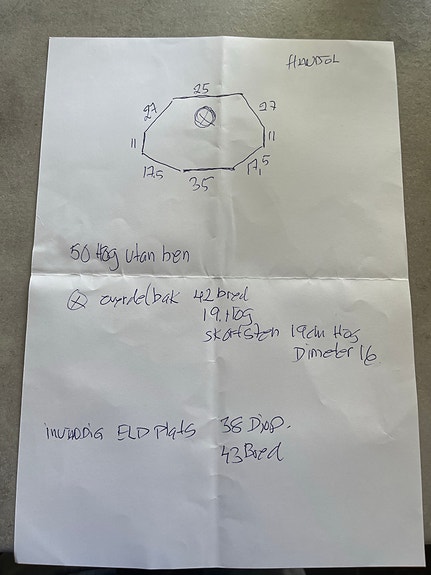 HANDÖL
25
27
27
11
11
17,5
17,5
35
50 Hög utan ben
övredelbak 42 bred
19. Hög
skorsten 19cm Hög
Dimeter 16
invändig ELD Plats 38 Djup.
43 Bred